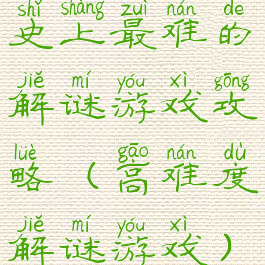 shǐ shàng zuì nán de
史上最难的
jiě mí yóu xì gōng
解谜游戏攻
lüè gāo nán dù
略(高难度
jiě mí yóu xì
解谜游戏)